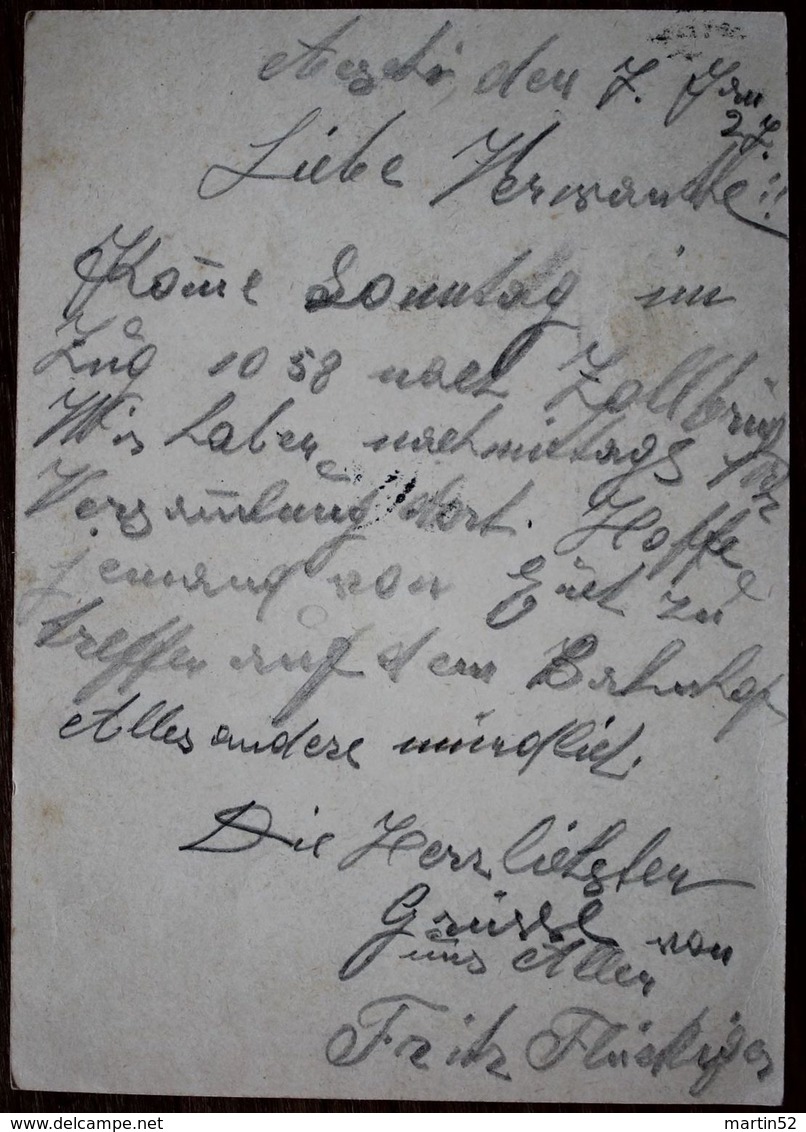 Aeschi, den 7. Jan
27.
Liebe Verwandte!!
Kom̄e Sonntag im
Zug 10 58 nach Zollbrüg
Wir haben nachmittags
Versam̄lung dort. Hoffe
jemand von Euch zu
treffen auf dem Bahnhof
Alles andere mündlich.
Die Herzlichsten
Grüsse von
uns Allen
Fritz Flückiger
martin52